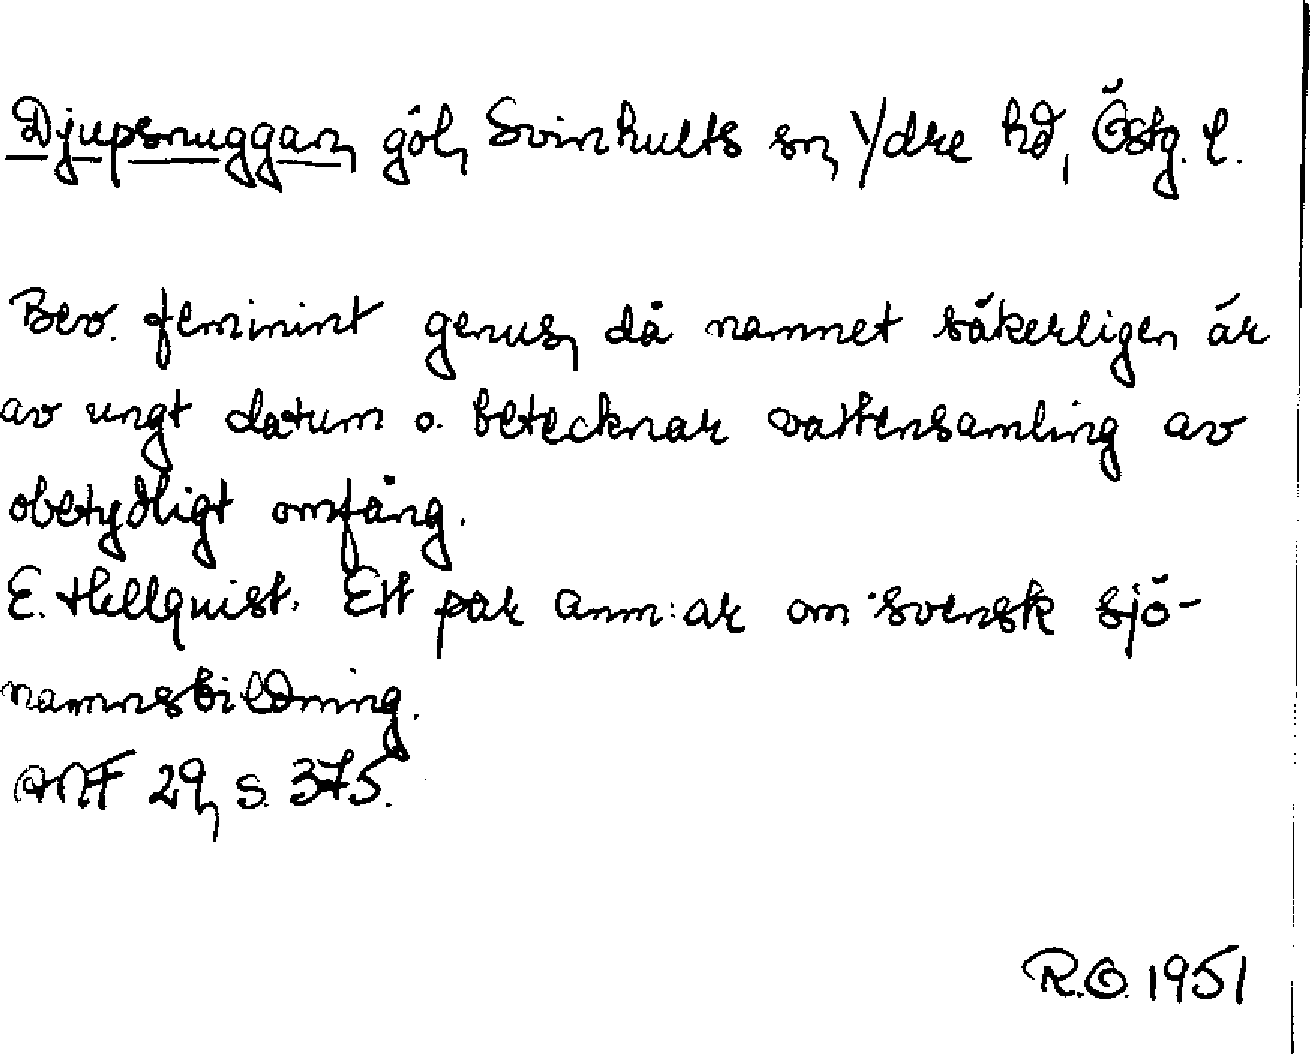 Djupsnuggan, göl, Svinhults sn, Ydre hd, Östg. l.
Bev. feminint genus, då namnet säkerligen är
av ungt datum o. betecknar vattensamling av
obetydligt omfång.
E. Hellquist. Ett par anm:ar om svensk sjö-
namnsbildning.
ANF 29, s. 375.
R.O. 1951